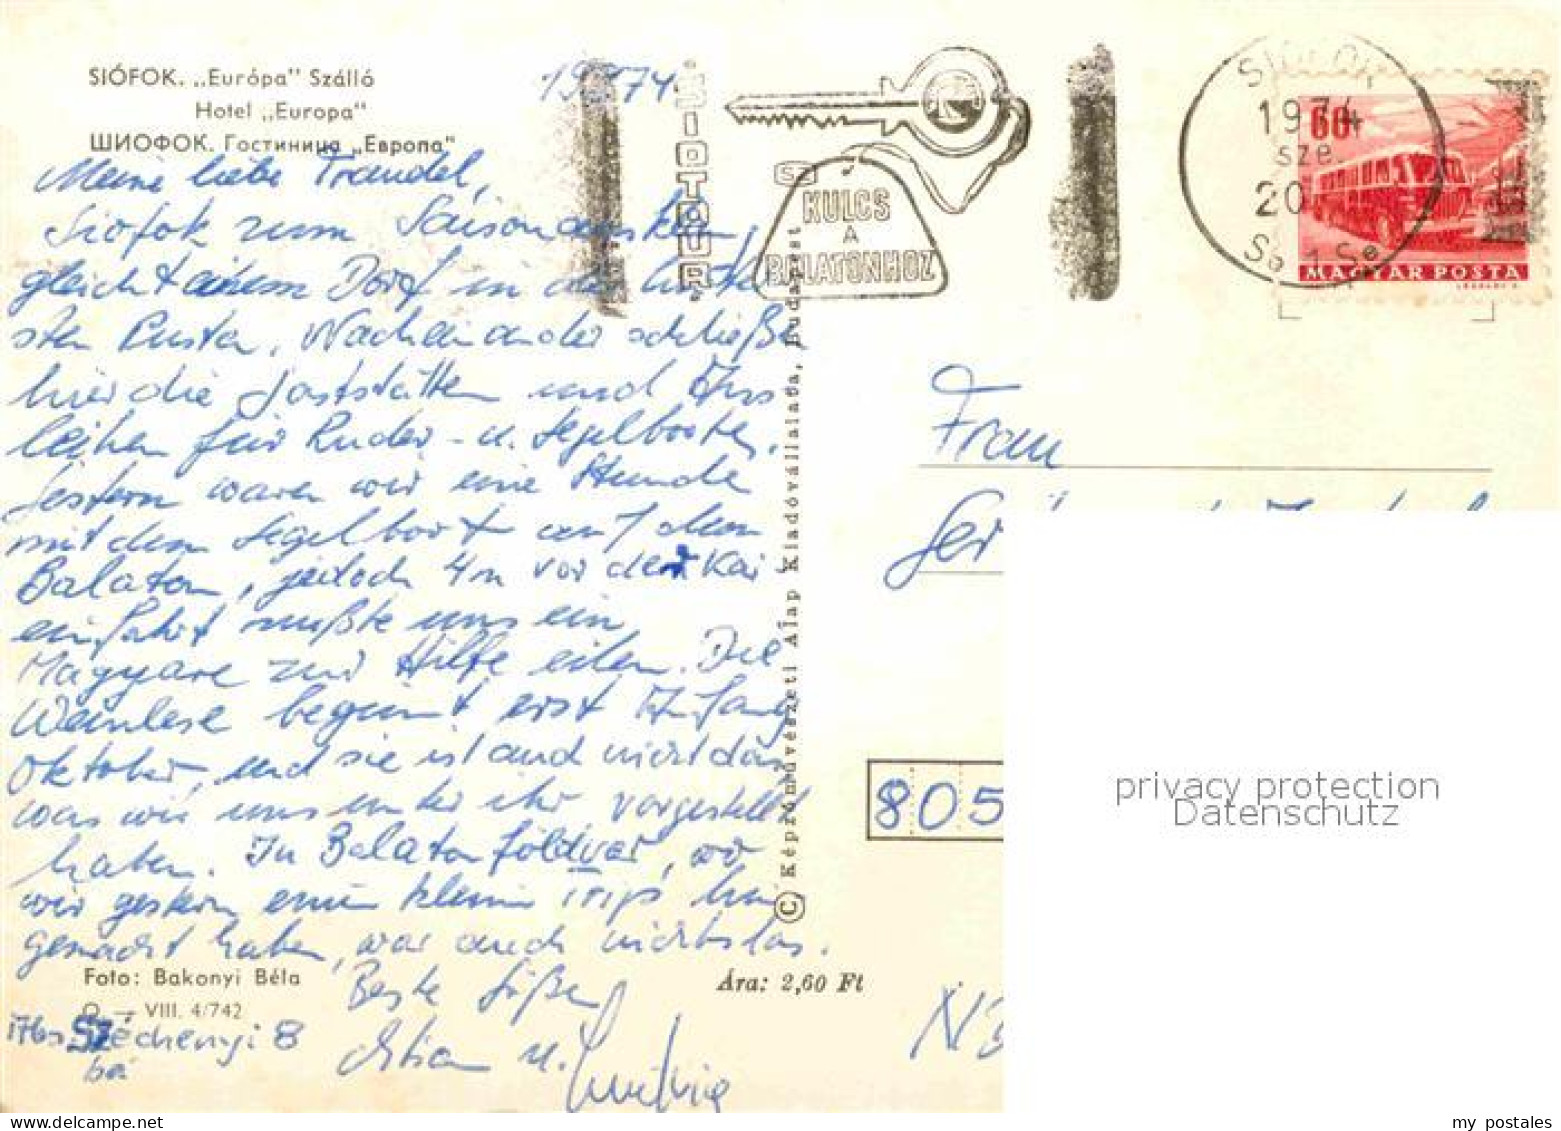 SIÓFOK. „Európa" Szálló
Hotel „Europa"
ШИОФОК. Гостиница „Европа"
1974
SIOTOUR
KULCS
A
BALATONHOZ
1974
sze.
20
60f
MAGYAR POSTA
Meine liebe Traudel,
Siofok zum Saisonausklang,
gleicht einem Dorf in der
sten Pusta. Nacheinander schließen
hier die Gaststätten und Aus
leihen für Ruder- u. Segelbooten.
Gestern waren wir eine Stunde
mit dem Segelboot auf dem
Balaton, jedoch 4m vor der Kai
einfahrt mußte uns ein
Magyare zur Hilfe eilen. Die
Weinlese beginnt erst Anfang
Oktober, und sie ist auch nicht das
was wir uns unter ihr vorgestellt
haben. In Balaton földvar, wo
wir gestern einen kleinen Trip hin
gemacht haben, war auch nichts los.
Beste Grüße
u.
Széchenyi 8
Foto: Bakonyi Béla
VIII. 4/742
Ára: 2,60 Ft
© Képzőművészeti Alap Kiadóvállalata, Budapest
Frau
Ger
805
privacy protection
Datenschutz
my postales